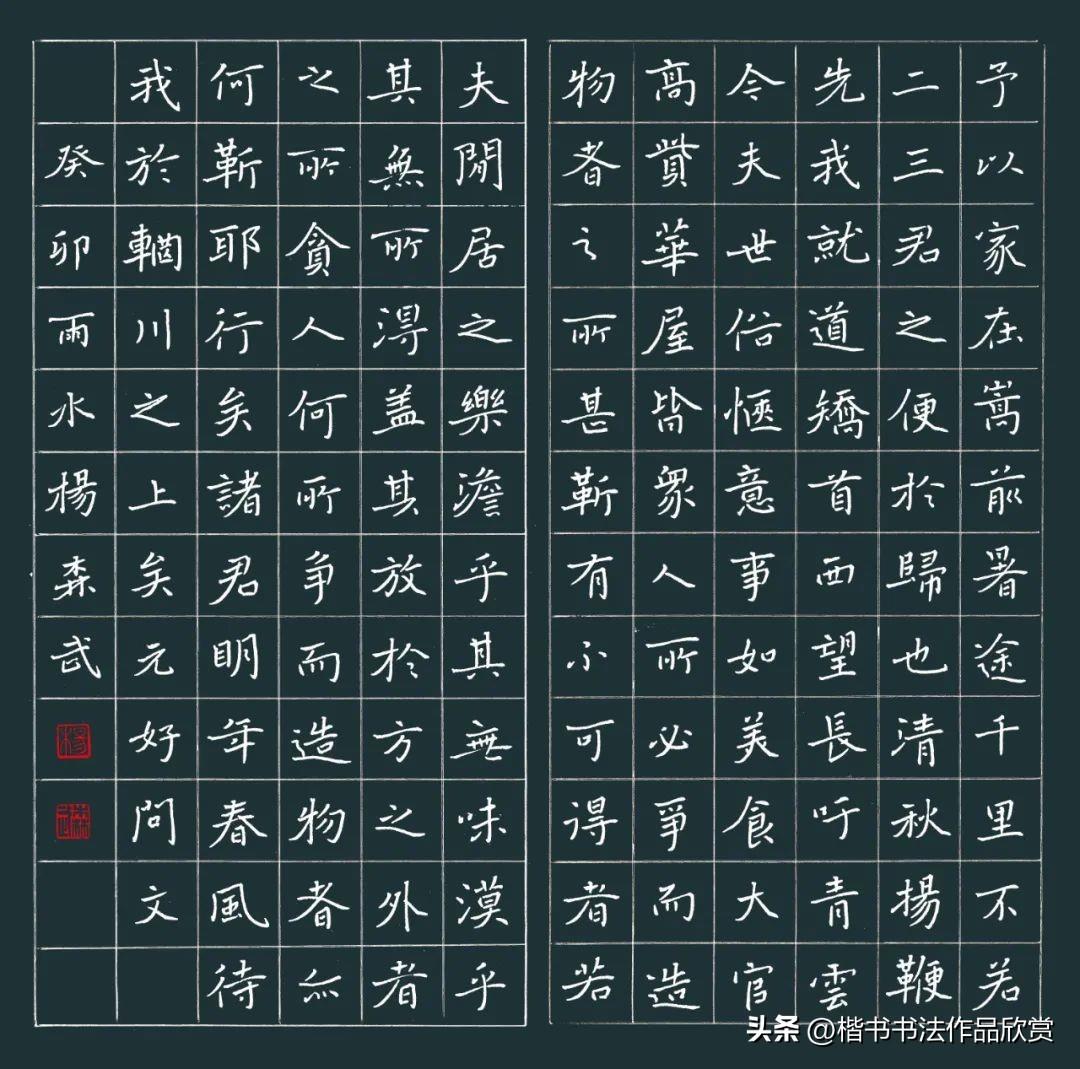 予以家在嵩前暑途千里不若
二三君之便於歸也清秋揚鞭
先我就道矯首西望長吁青雲
今夫世俗愜意事如美食大官
高貲華屋皆衆人所必爭而造
物者之所甚靳有不可得者若
夫閒居之樂澹乎其無味漠乎
其無所得盖其放於方之外者
之所貪人何所争而造物者亦
何靳耶行矣諸君明年春風待
我於輞川之上矣元好問文
癸卯雨水楊森武
楊
森武
头条 @楷书书法作品欣赏